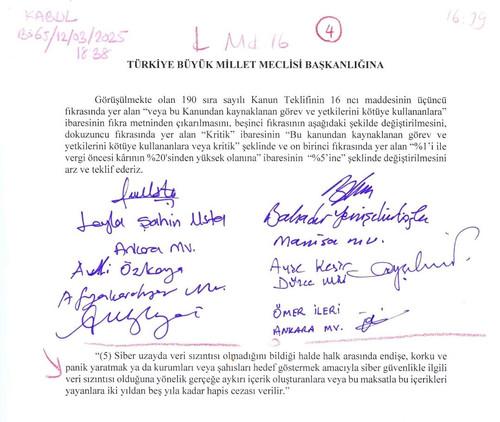 KABUL
B365/12/03/2025
1838
16:29
Md 16
4
TÜRKİYE BÜYÜK MİLLET MECLİSİ BAŞKANLIĞINA
Görüşülmekte olan 190 sıra sayılı Kanun Teklifinin 16 ncı maddesinin üçüncü
fıkrasında yer alan “veya bu Kanundan kaynaklanan görev ve yetkilerini kötüye kullananlara”
ibaresinin fıkra metninden çıkarılmasını, beşinci fıkrasının aşağıdaki şekilde değiştirilmesini,
dokuzuncu fıkrasında yer alan “Kritik” ibaresinin “Bu kanundan kaynaklanan görev ve
yetkilerini kötüye kullananlara veya kritik” şeklinde ve on birinci fıkrasında yer alan “%1’i ile
vergi öncesi kârının %20'sinden yüksek olanına” ibaresinin “%5’ine” şeklinde değiştirilmesini
arz ve teklif ederiz.
Leyla Şahin Usta
Ankara MV.
Bahadır Yenişehirlioğlu
Manisa MV.
Ali Özkaya
Afyonkarahisar Mv.
Ayşe Keşir
Düzce Mv.
ÖMER İLERİ
ANKARA MV.
“(5) Siber uzayda veri sızıntısı olmadığını bildiği halde halk arasında endişe, korku ve
panik yaratmak ya da kurumları veya şahısları hedef göstermek amacıyla siber güvenlikle ilgili
veri sızıntısı olduğuna yönelik gerçeğe aykırı içerik oluşturanlara veya bu maksatla bu içerikleri
yayanlara iki yıldan beş yıla kadar hapis cezası verilir.”